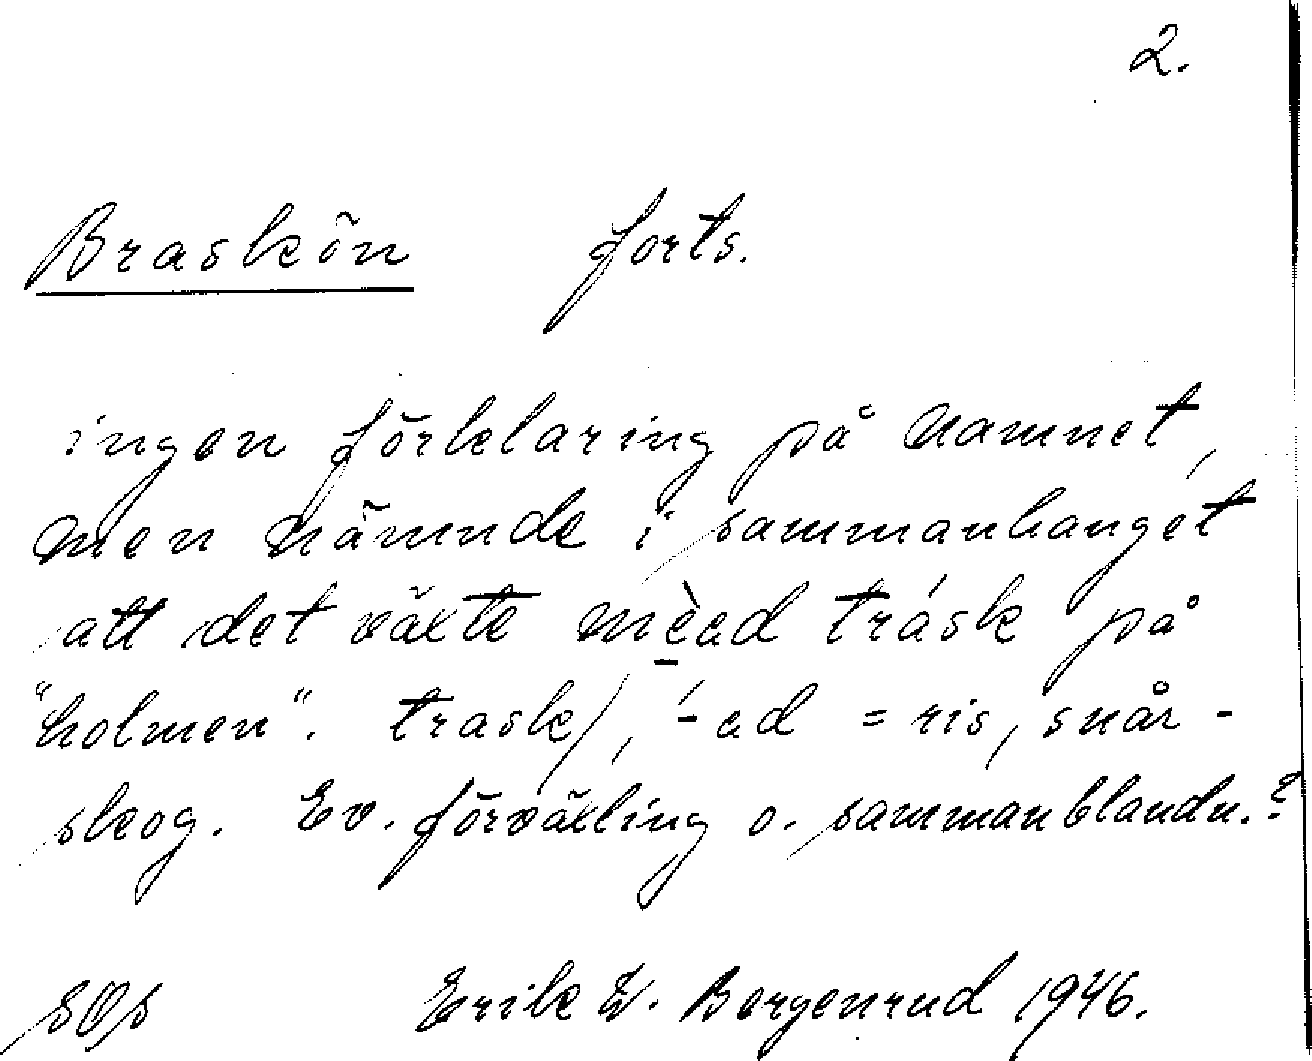 2.
Braskön forts.
ingen förklaring på namnet,
men nämnde i sammanhanget
att det växte mèed trásk på
"holmen". trask/, ́-ed = ris, snår-
skog. Ev. förväxling o. sammanblandn.?
Erik E. Bergenrud 1946.